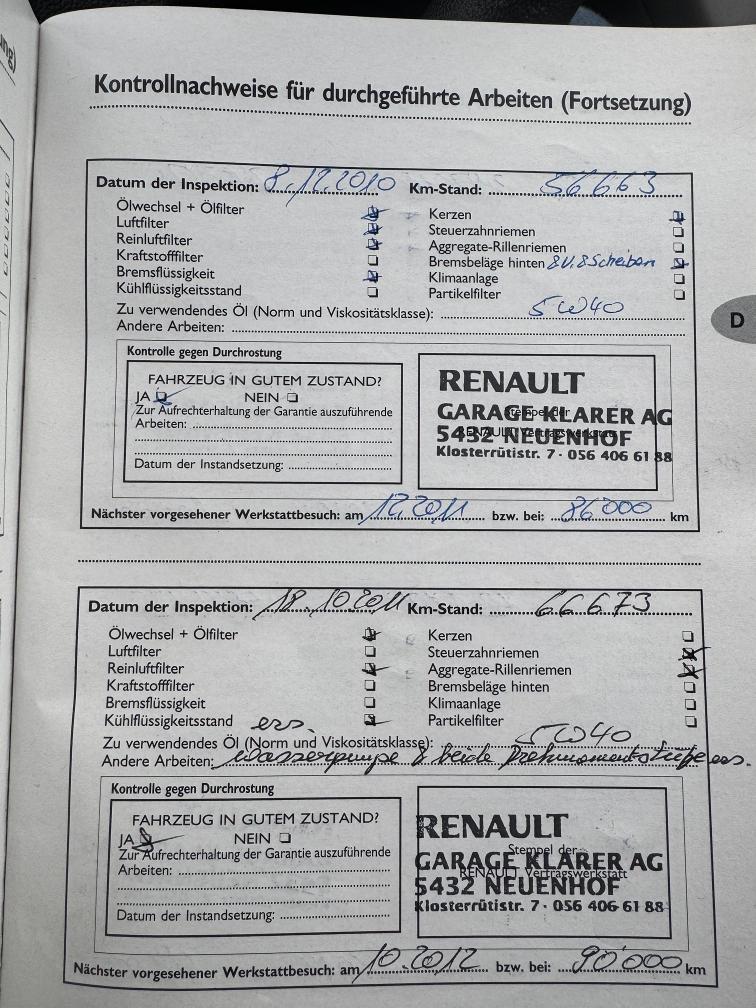 Kontrollnachweise für durchgeführte Arbeiten (Fortsetzung)
Datum der Inspektion: 8.12.2010 Km-Stand: 56663
Ölwechsel + Ölfilter Kerzen
Luftfilter Steuerzahnriemen
Reinluftfilter Aggregate-Rillenriemen
Kraftstofffilter Bremsbeläge hinten & V. & Scheiben
Bremsflüssigkeit Klimaanlage
Kühlflüssigkeitsstand Partikelfilter
Zu verwendendes Öl (Norm und Viskositätsklasse): 5W40
Andere Arbeiten:
D
Kontrolle gegen Durchrostung
FAHRZEUG IN GUTEM ZUSTAND?
JA NEIN
Zur Aufrechterhaltung der Garantie auszuführende
Arbeiten:
Datum der Instandsetzung:
RENAULT
Stempel der
GARAGE KLARER AG
RENAULT Vertragswerkstatt
5432 NEUENHOF
Klosterrütistr. 7 · 056 406 61 88
Nächster vorgesehener Werkstattbesuch: am 12.2011 bzw. bei: 86'000 km
Datum der Inspektion: 18.10.2011 Km-Stand: 66673
Ölwechsel + Ölfilter Kerzen
Luftfilter Steuerzahnriemen
Reinluftfilter Aggregate-Rillenriemen
Kraftstofffilter Bremsbeläge hinten
Bremsflüssigkeit Klimaanlage
Kühlflüssigkeitsstand ers. Partikelfilter
Zu verwendendes Öl (Norm und Viskositätsklasse): 5W40
Andere Arbeiten: Wasserpumpe & beide Drehmomentstütze ers.
Kontrolle gegen Durchrostung
FAHRZEUG IN GUTEM ZUSTAND?
JA NEIN
Zur Aufrechterhaltung der Garantie auszuführende
Arbeiten:
Datum der Instandsetzung:
RENAULT
Stempel der
GARAGE KLARER AG
RENAULT Vertragswerkstatt
5432 NEUENHOF
Klosterrütistr. 7 · 056 406 61 88
Nächster vorgesehener Werkstattbesuch: am 10.2012 bzw. bei: 90'000 km